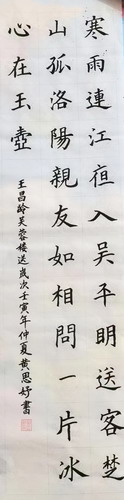 寒雨連江亱入吳平明送客楚
山孤洛陽親友如相問一片冰
心在玉壺
王昌齡芙蓉樓送歲次壬寅年仲夏黃思妤書